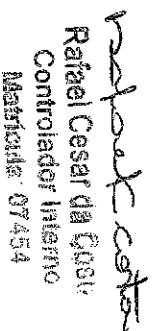 Rafael Costa
Rafael Cesar da Costa
Controlador Interno
Matrícula: 07454